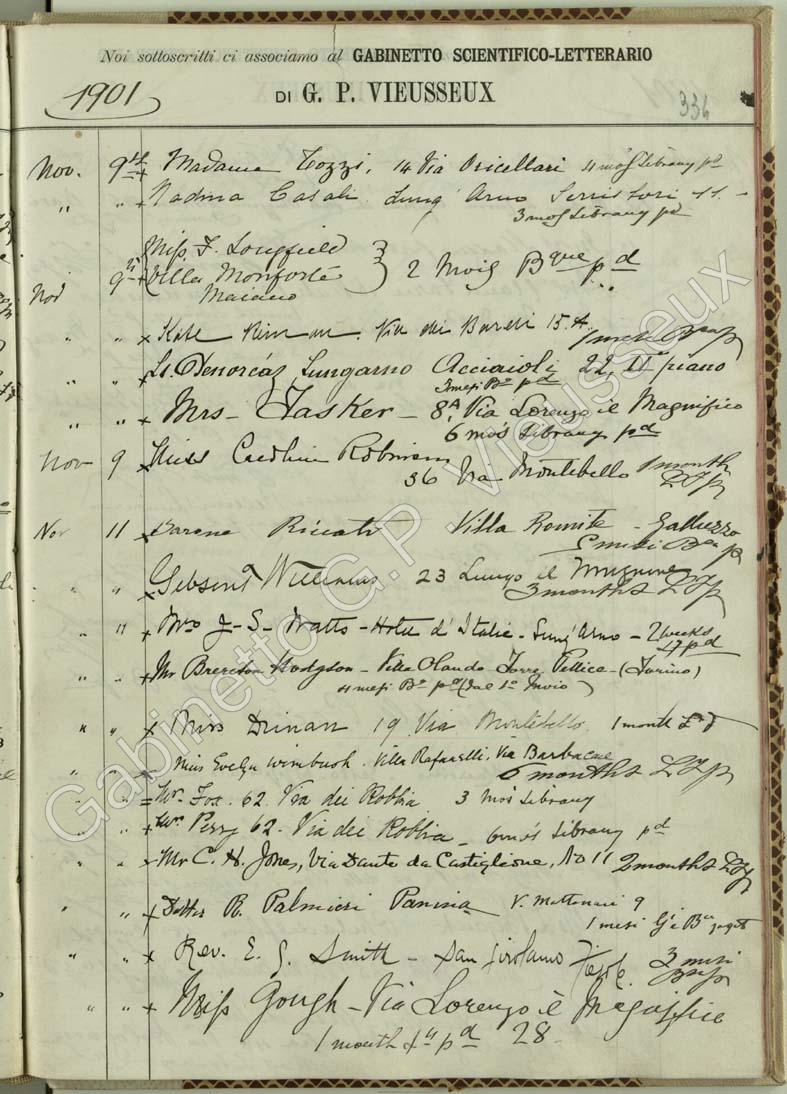 Noi sottoscritti ci associamo al GABINETTO SCIENTIFICO-LETTERARIO
1901
DI G. P. VIEUSSEUX
336
Nov. 9 Madame Tozzi, 14 Via Oricellari 4 mos Library pd
" " Nadina Casali Lung' Arno Serristori 11
3 mos Library pd
Miss F. Longfield
Nov 9 Villa Monforte 2 Mois Bque pd
Maiano
" " Kate Via dei Bardi 15
" " Lungarno Acciaioli 22, II piano
3 mesi Ba pd
" " Mrs - Tasker - 8A, Via Lorenzo il Magnifico
6 mos Library pd
Nov 9 Miss Caroline Robinson
36 Via Montebello 1 month
Nov 11 Barone Ricasoli Villa Romita - Galluzzo
mesi
" " Williams 23 Lungo il Mugnone
3 months
" 11 Mrs J - S - Watts - Hotel d'Italie - Lung' Arno - 2 weeks
pd
" " Mr Brereton Hodgson - Villa Olanda Torre Pellice - (Torino)
4 mesi Ba pd (dal 1o Invio)
" " Miss Drinan 19 Via Montebello 1 month
" " Miss Evelyn Wimbush. Villa Rafanelli, Via Barbacane
6 months
" " Mr. Fox. 62. Via dei Robbia 3 Mos Library
" " Mrs Perry 62. Via dei Robbia - 6 mos Library pd
" " Mr C. H. Jones, Via Dante da Castiglione, No 11 2 months
" " R. Palmieri V. 9
1 mesi
" " Rev. E. G. Smith - San Girolamo Fiesole. 3 mesi
" " Miss Gough - Via Lorenzo il Magnifico
1 month pd 28
Gabinetto G.P. Vieusseux